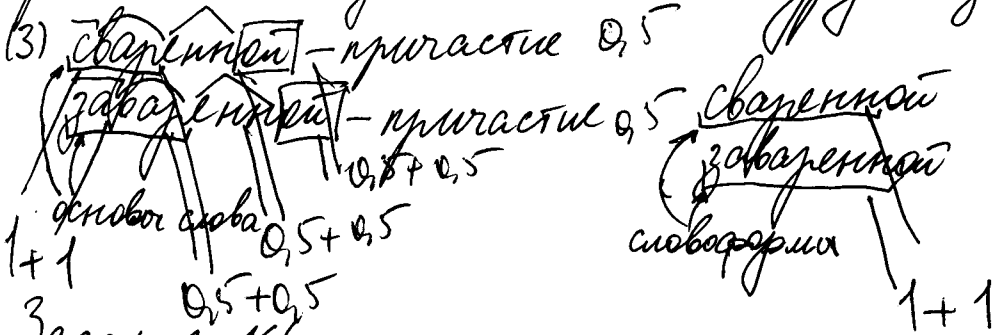 (3) сваренной – причастие 0,5
заваренной – причастие 0,5
сваренной
заваренной
0,5 + 0,5
основы слова
0,5 + 0,5
словоформы
1 + 1
0,5 + 0,5
1 + 1